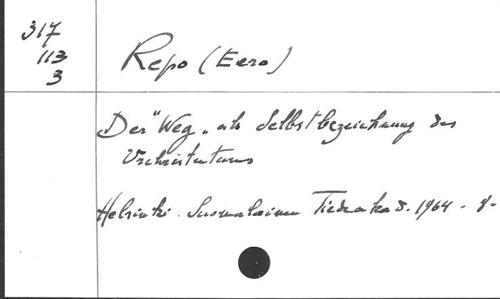 317
113
3
Repo (Eero)
Der "Weg" als Selbstbezeichnung des
Urchristentums
Helsinki. Suomalainen Tiedeakad. 1964 - 8-